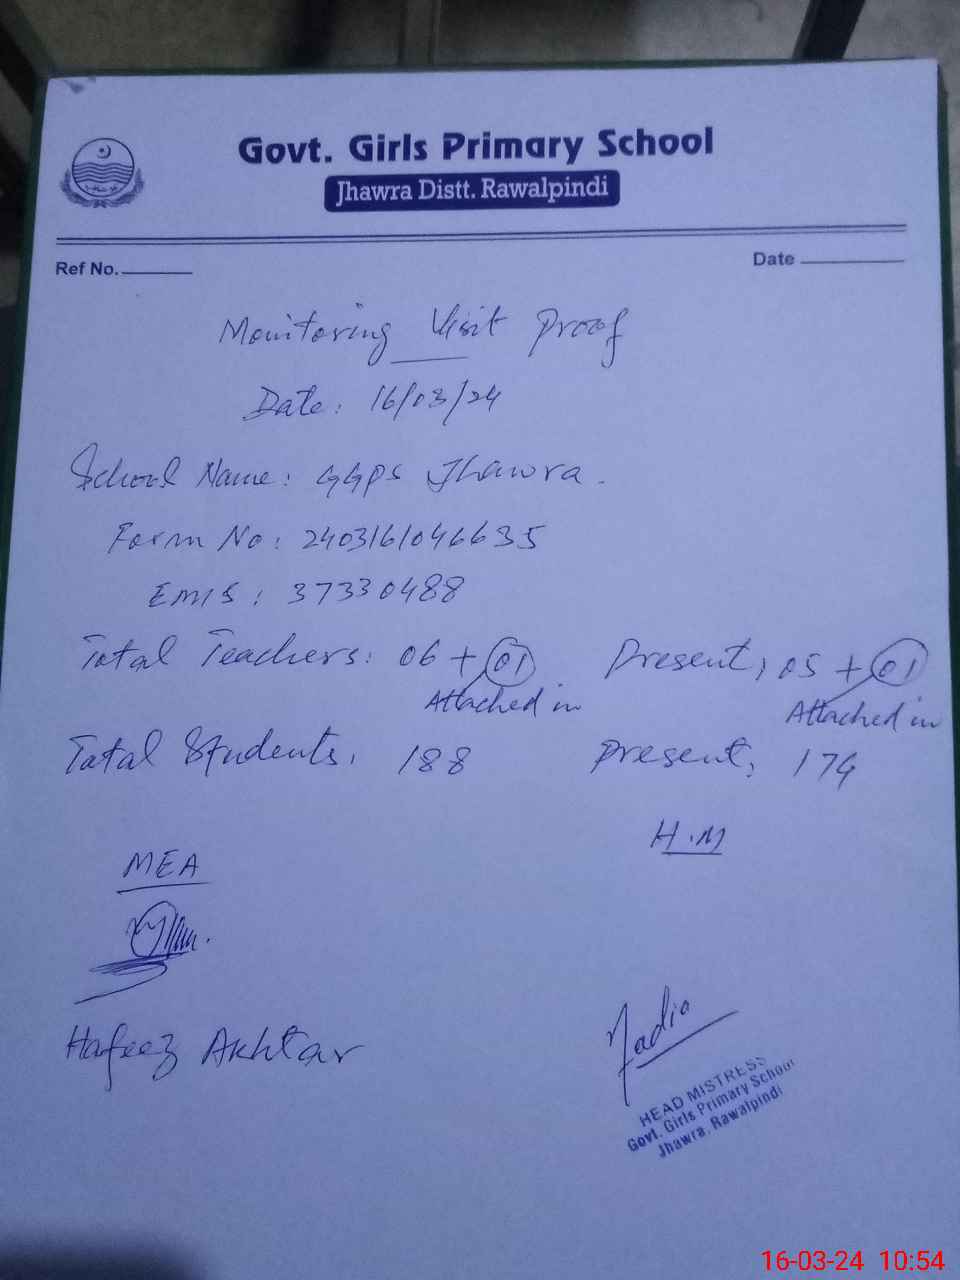 Govt. Girls Primary School
Jhawra Distt. Rawalpindi
Ref No.
Date
Monitoring Visit Proof
Date: 16/03/24
School Name: GGPS Jhawra.
Form No: 2403161046635
EMIS: 37330488
Total Teachers: 06 + 01 Present, 05 + 01
Attached in Attached in
Total Students, 188 Present, 174
H.M
MEA
Hafeez Akhtar
Nadia
HEAD MISTRESS
Govt. Girls Primary School
Jhawra, Rawalpindi
16-03-24 10:54